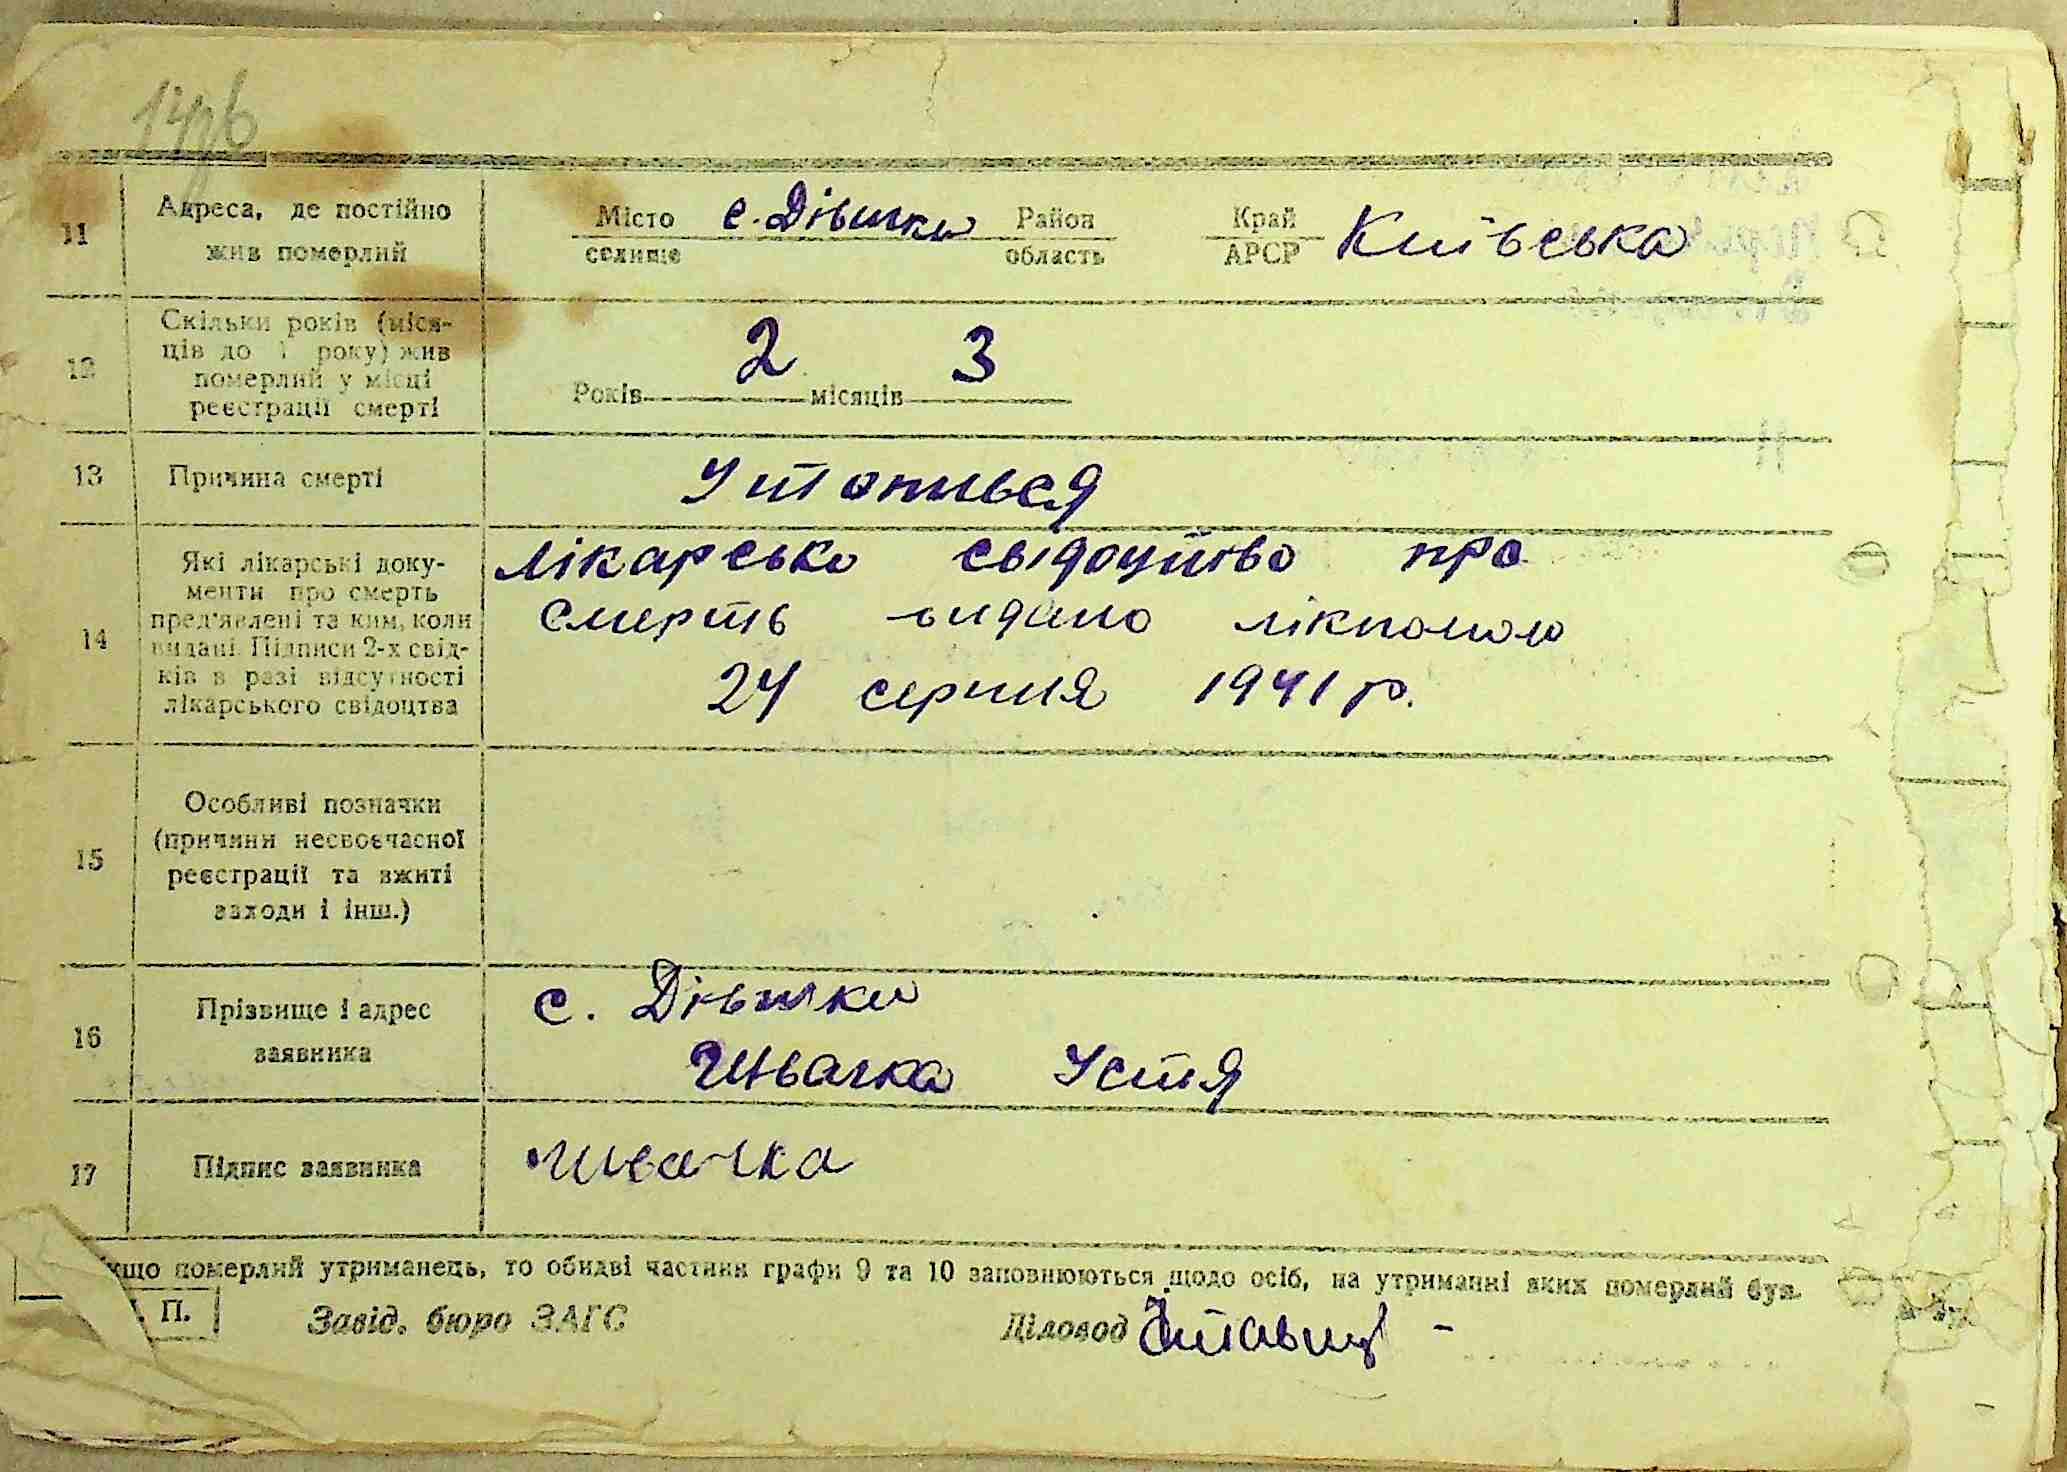 11
Адреса, де постійно
жив померлий
Місто
селище
с. Дівички
Район
область
Край
АРСР
Київська
12
Скільки років (міся-
ців до 1 року) жив
померлий у місці
реєстрації смерті
Років 2 місяців 3
13
Причина смерті
Утопився
14
Які лікарські доку-
менти про смерть
пред'явлені та ким, коли
видані. Підписи 2-х свід-
ків в разі відсутності
лікарського свідоцтва
Лікарське свідоцтво про
смерть видано лікпомом
24 серпня 1941 р.
15
Особливі позначки
(причини несвоєчасної
реєстрації та вжиті
заходи і інш.)
16
Прізвище і адрес
заявника
с. Дівички
Швачка Устя
17
Підпис заявника
Швачка
якщо померлий утриманець, то обидві частини графи 9 та 10 заповнюються щодо осіб, на утриманні яких померлий був.
П.
Завід. бюро ЗАГС
Діловод